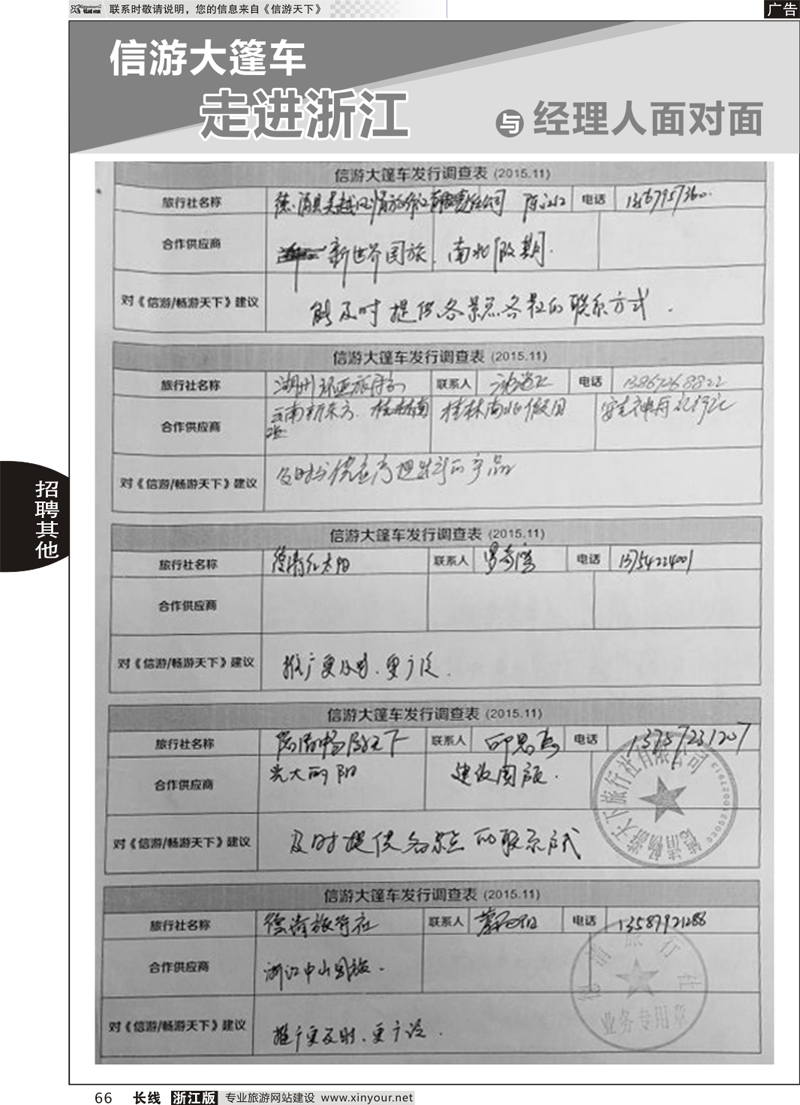 联系时敬请说明，您的信息来自《信游天下》
广告
信游大篷车
走进浙江
与 经理人面对面
招聘其他
信游大篷车发行调查表 (2015.11)
旅行社名称 电话
合作供应商 新世界国旅 南北假期.
对《信游/畅游天下》建议 能及时提供各景点各社的联系方式.
信游大篷车发行调查表 (2015.11)
旅行社名称 联系人 电话 13867268822
合作供应商 云南新东方. 桂林南北假日
对《信游/畅游天下》建议 及时
信游大篷车发行调查表 (2015.11)
旅行社名称 德清红太阳 联系人 电话 13754224001
合作供应商
对《信游/畅游天下》建议 推广更及时、更广泛.
信游大篷车发行调查表 (2015.11)
旅行社名称 德清畅游天下 联系人 电话 13757231207
合作供应商 建设国旅.
对《信游/畅游天下》建议 及时提供各景点的联系方式
德清畅游天下旅行社有限公司
信游大篷车发行调查表 (2015.11)
旅行社名称 德清旅行社 联系人 电话 13587921288
合作供应商 浙江中山国旅.
对《信游/畅游天下》建议 推广更及时、更广泛.
德清旅行社
业务专用章
66 长线 浙江版 专业旅游网站建设 www.xinyour.net